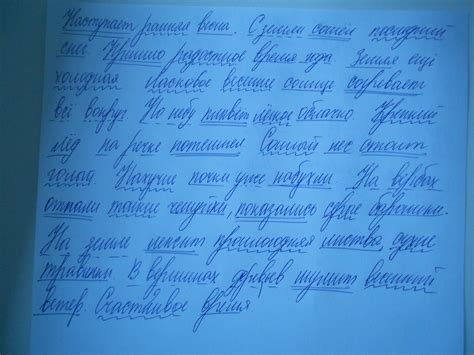 Наступает ранняя весна. С земли сошёл последний
снег. Пришло радостное время года. Земля ещё
холодная Ласковое весеннее солнце согревает
всё вокруг. По небу плывёт лёгкое облачко. Крепкий
лёд на речке потемнел. Сонный лес стоит
голый Пахучие почки уже набухли. На вербах
отпали тонкие чешуйки, показались серые барашки.
На земле лежит прошлогодняя листва, сухие
травинки. В вершинах деревьев шумит весенний
ветер. Счастливое время.